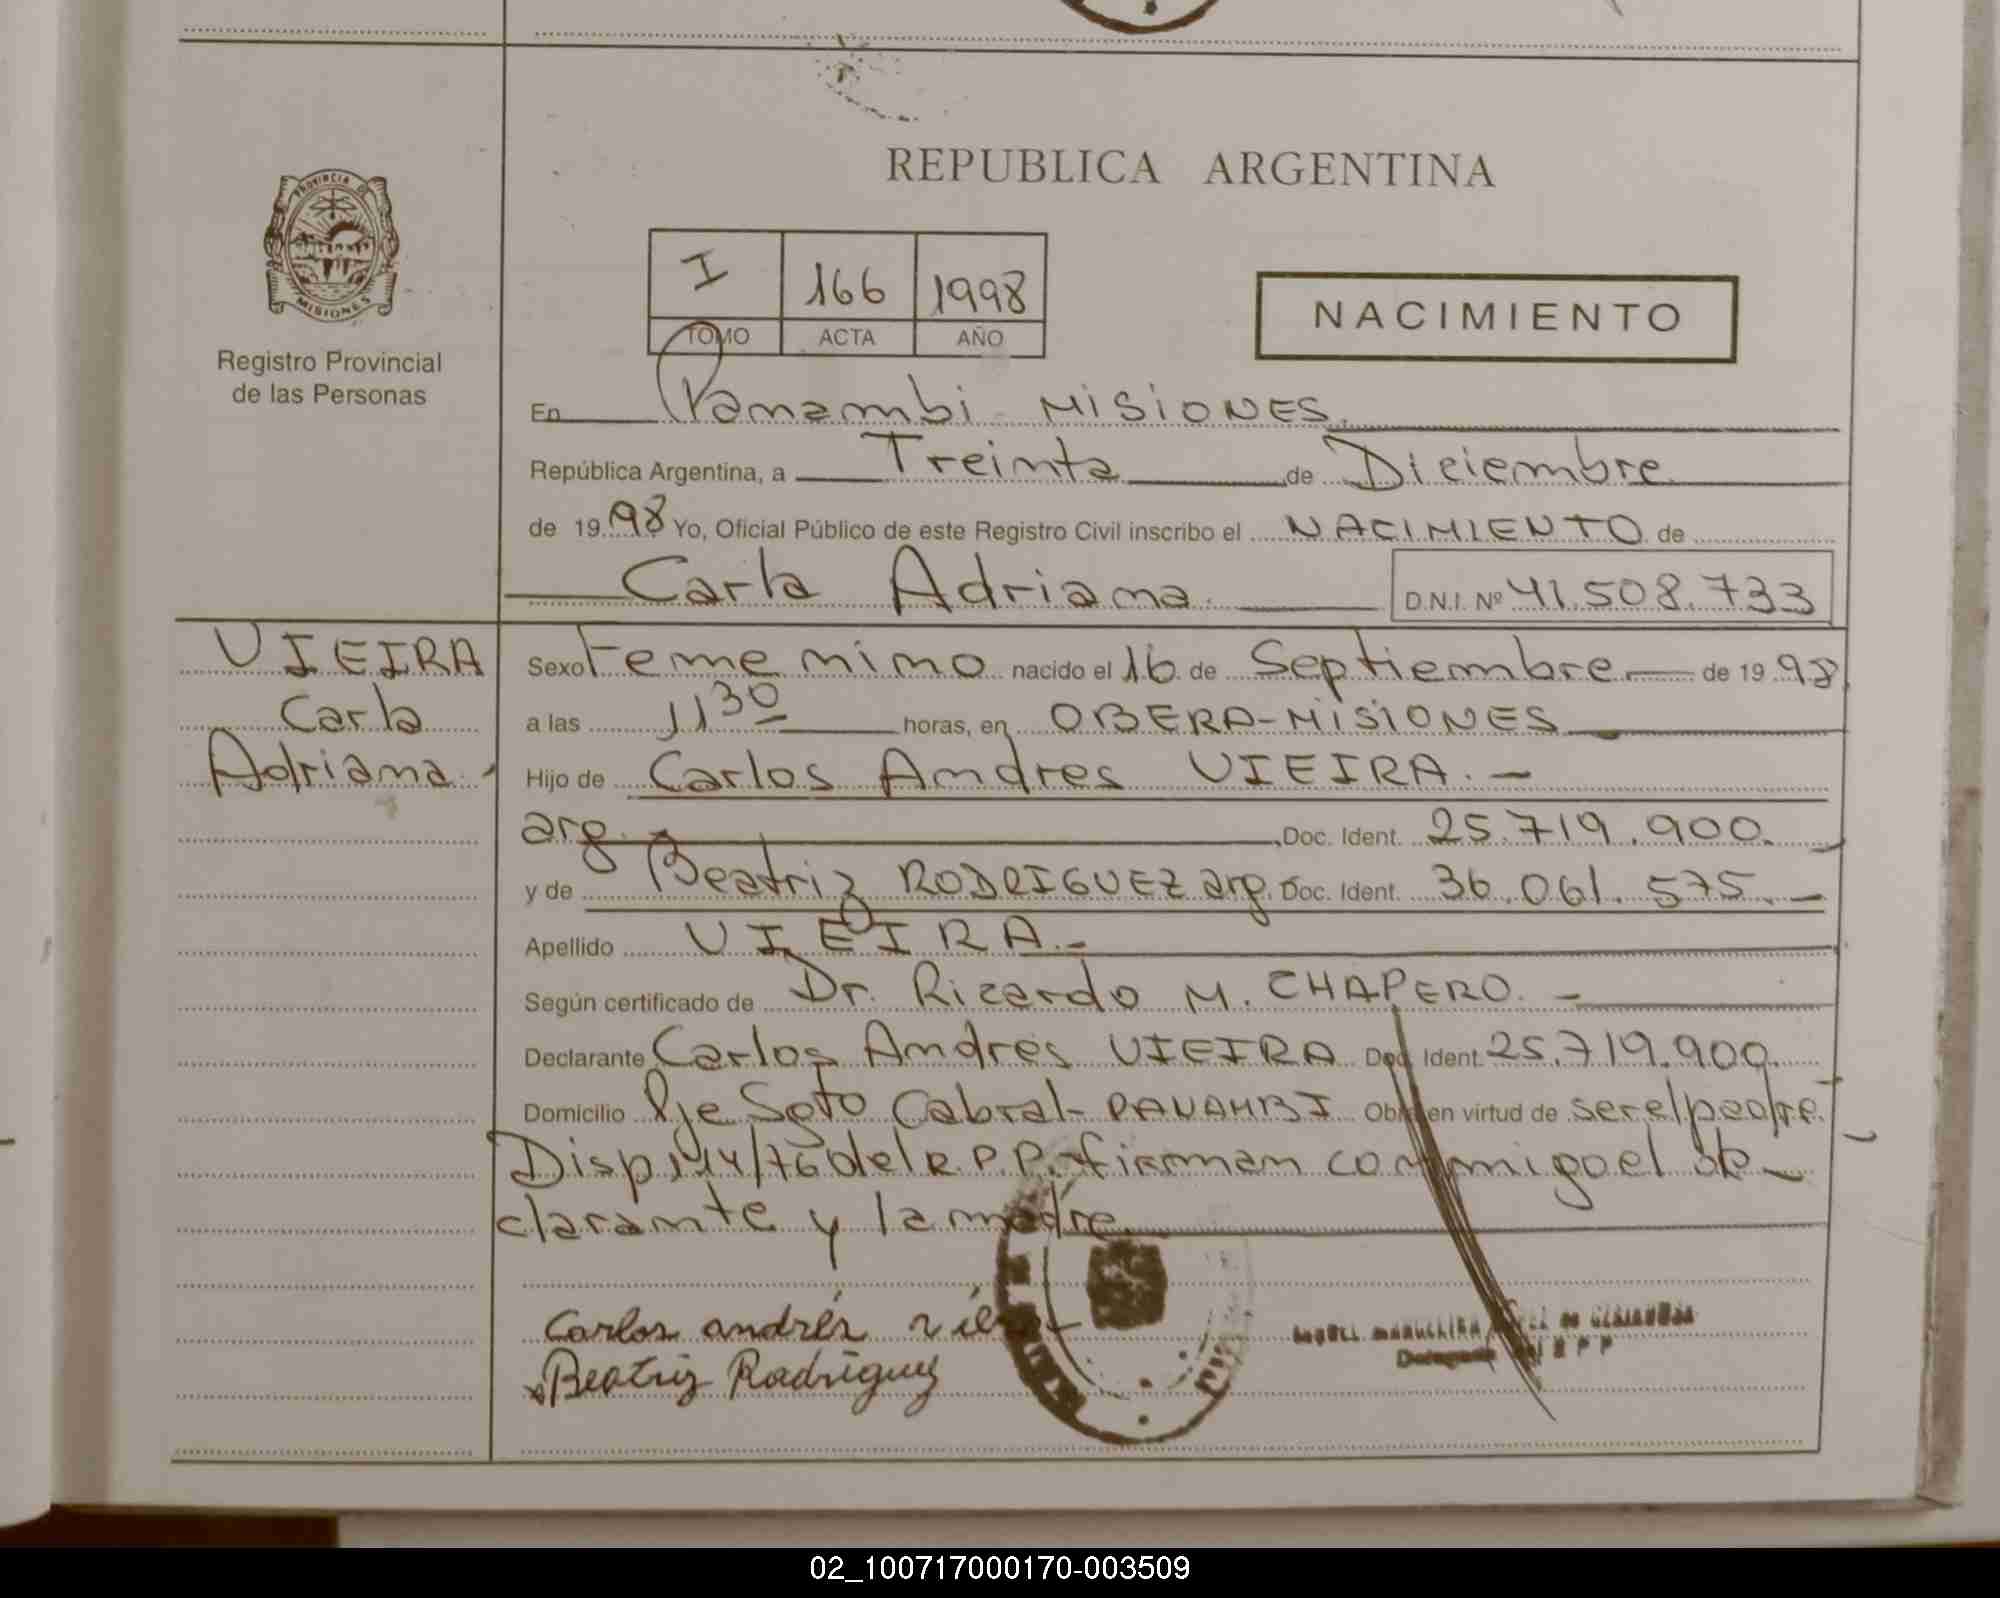 REPUBLICA ARGENTINA
PROVINCIA DE
MISIONES
Registro Provincial
de las Personas
I 166 1998
TOMO ACTA AÑO
NACIMIENTO
En Panambi - MISIONES.
República Argentina, a Treinta de Diciembre
de 1998 Yo, Oficial Público de este Registro Civil inscribo el NACIMIENTO de
Carla Adriana.
D.N.I. Nº 41.508.733
VIEIRA
Carla
Adriana.-
Sexo Femenino nacido el 16 de Septiembre de 1998
a las 11 30 horas, en OBERA-MISIONES
Hijo de Carlos Andres VIEIRA.-
arg. Doc. Ident. 25.719.900.
y de Beatriz RODRIGUEZ arg. Doc. Ident. 36.061.575.-
Apellido VIEIRA.-
Según certificado de Dr. Ricardo M. CHAPERO.-
Declarante Carlos Andres VIEIRA Doc. Ident. 25.719.900.
Domicilio Pje Soto Cabral- PANAMBI Obra en virtud de ser el padre.
Disp. 144/76 del R.P.P. firman conmigo el de-
clarante y la madre.
Carlos andrés
Beatriz Rodriguez
02_100717000170-003509